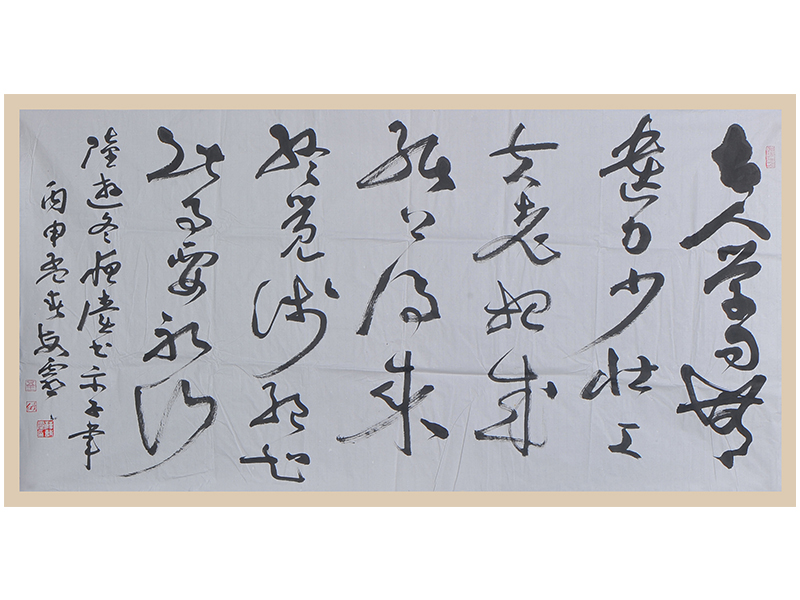 古人学问無
遗力少壮工
夫老始成
纸上得来
终觉浅绝知
此事要躬行
陸遊冬夜读书示子聿
丙申春